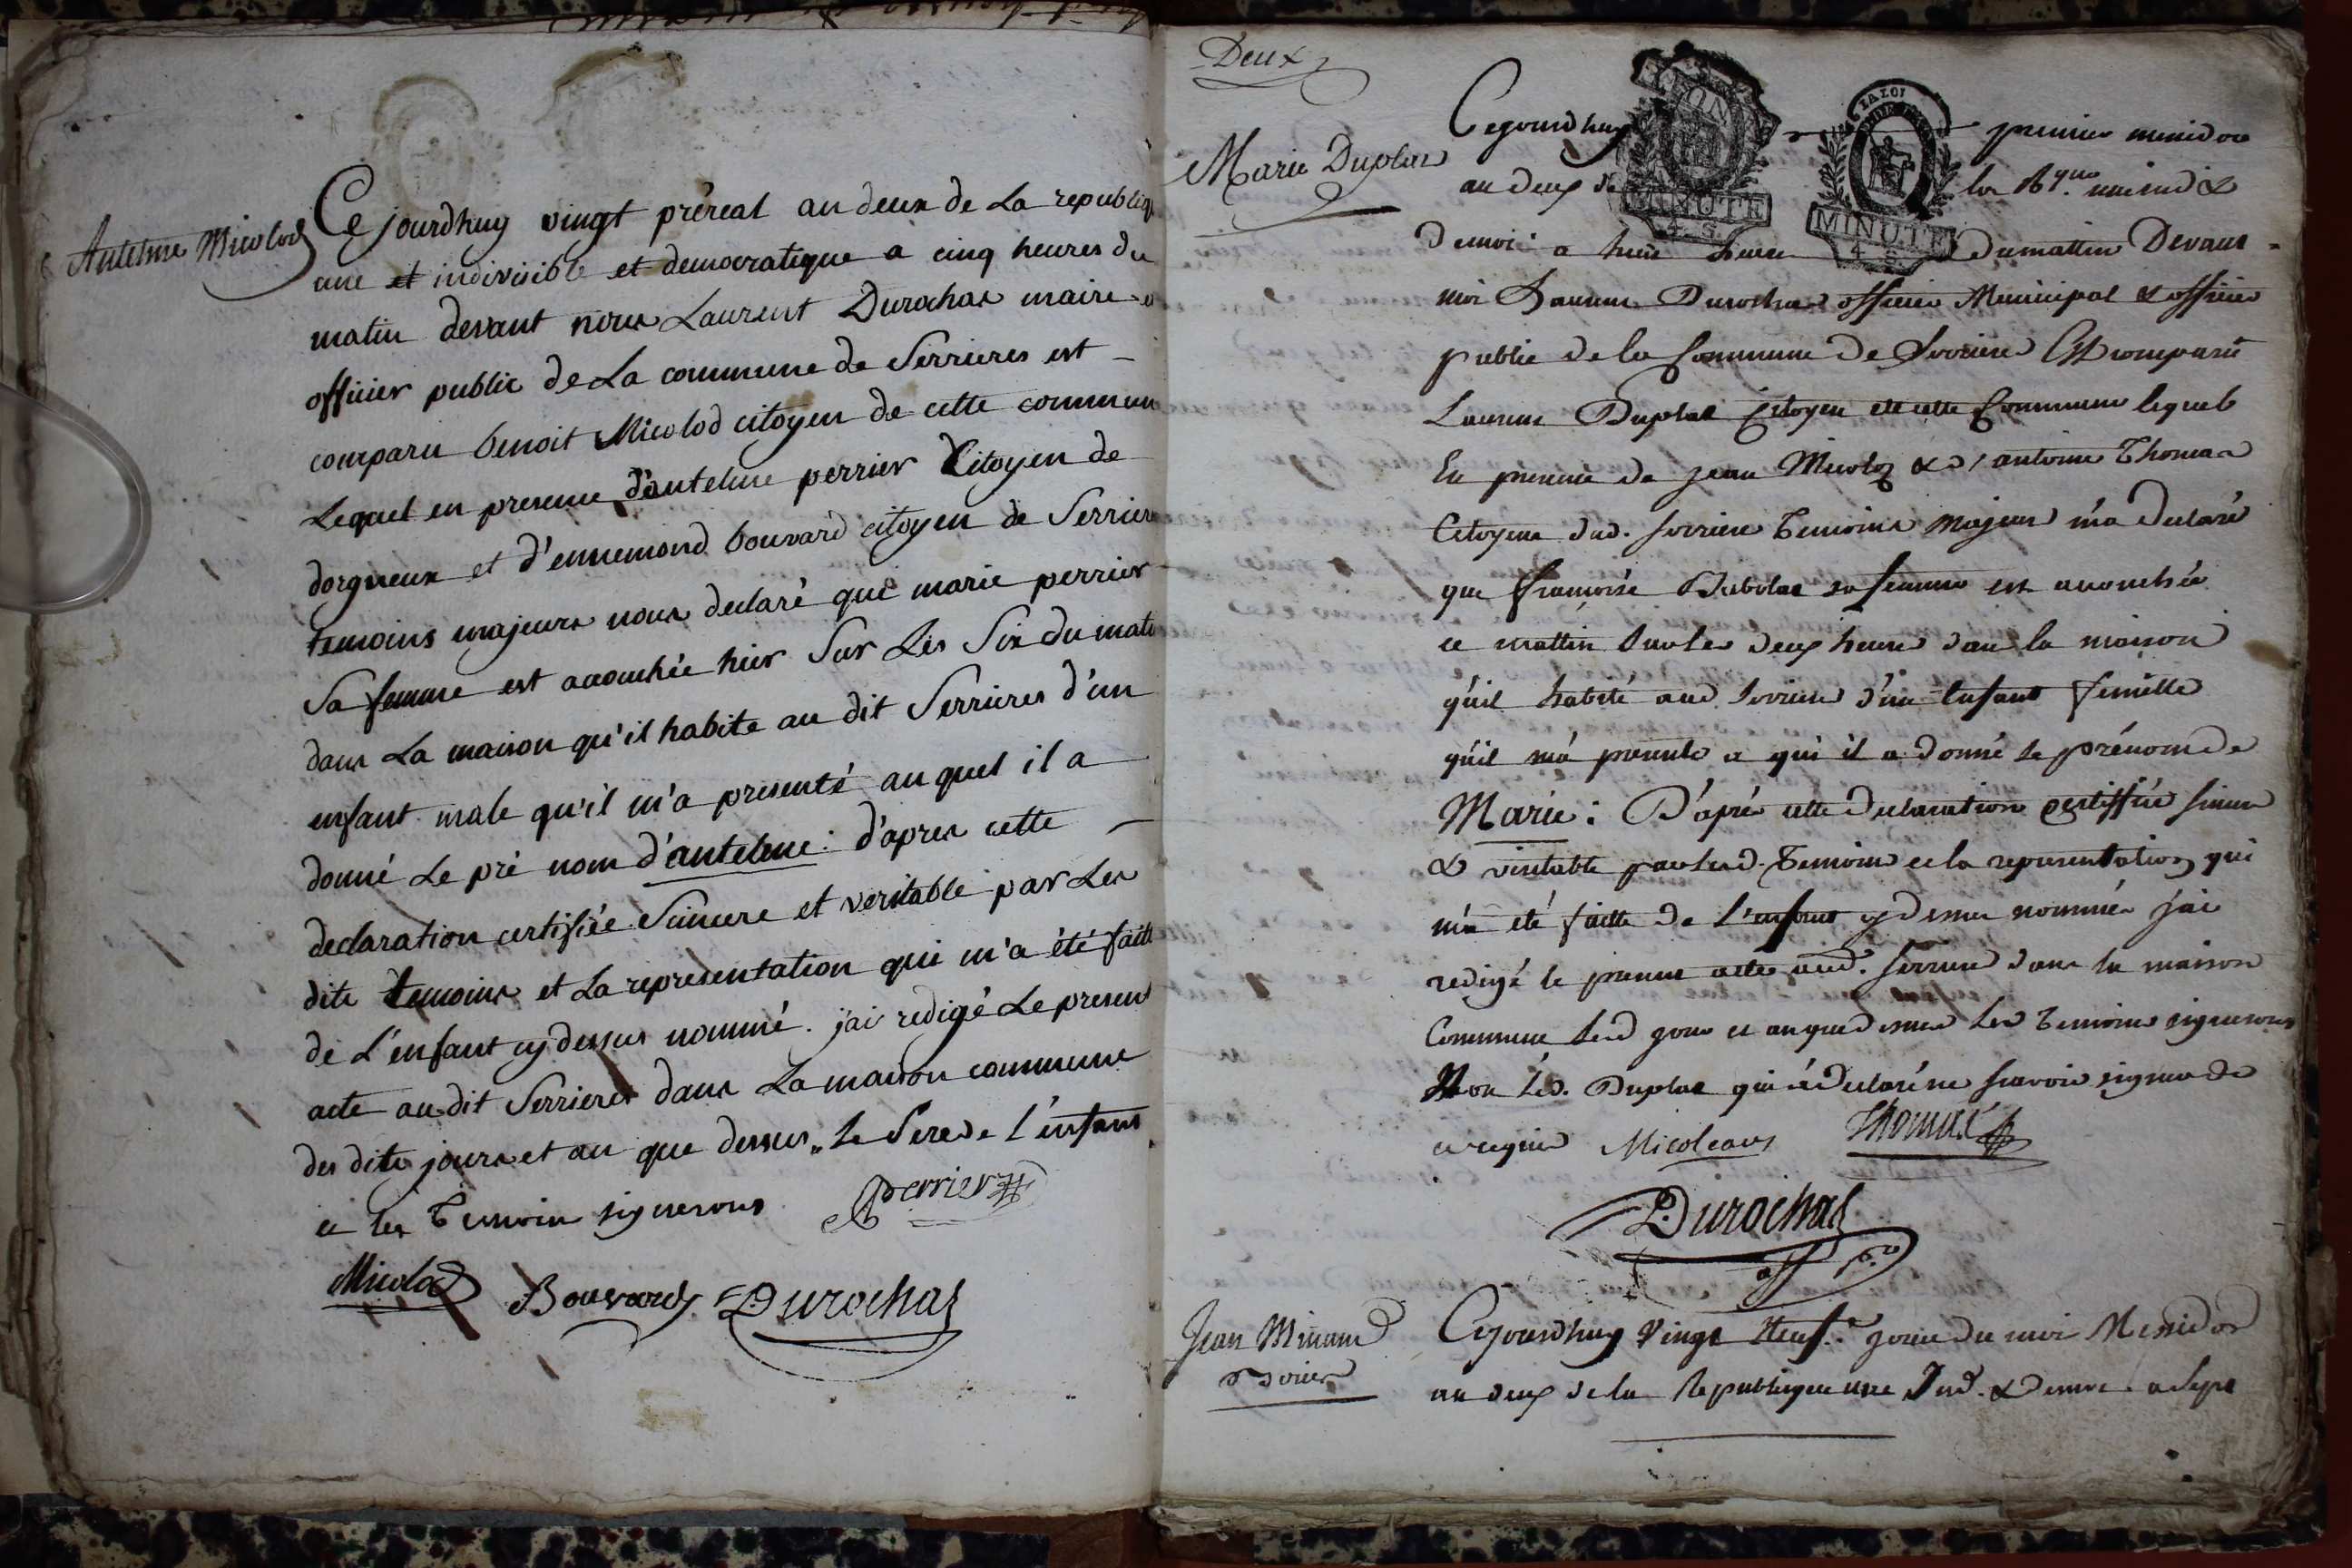 Antelme Micolod
Ce jourdhuy vingt préreal an deux de La republiq
une et indivisible et democratique a cinq heures du
matin devant nous Laurent Durochas maire e
officier public de La commune de Serrieres est
comparu benoit Micolod citoyen de cette commun
Lequel en presence d'antelme perrier Citoyen de
dorgneux et d'ennemond bouvard citoyen de Serriere
temoins majeurs nous declaré que marie perrier
Sa femme est accouchée hier Sur Les Six du mati
dans La maison qu'il habite au dit Serrieres d'un
enfant male qu'il m'a presenté auquel il a
donné Le pré nom d'antelme. d'apres cette
declaration certifiée Sincere et veritable par Les
dits temoins et La representation qui m'a été faite
de L'enfant cy dessus nommé. j'ai redigé Le present
acte au dit Serrieres dans La maison commune
des dits jours et an que dessus. Le Pere de l'énfant
et les temoin signerons Perrier
Micolod Bouvard Durochas
Deux
Marie Duplas
Cejourdhuy premier messidor
an deux de la Rque une ind &
Democ. a huit heures Dumattin Devant
moi Laurent Durochas officier Municipal & officier
public de la Commune de Serriere Est comparu
Laurent Duplas Citoyen de cette Commune lequel
En presence de jean Micoloz & d'antoine Thomas
Citoyens dud. Serriere temoins majeurs m'a Declaré
que françoise Dubolas sa femme est accouchée
ce mattin sur les deux heures dans la maison
qu'il habite aud. Serriere d'un Enfant femelle
qu'il m'a presenté a qui il a donné le prénom de
Marie: D'après cette Declaration certiffiée sincere
& veritable par lesd. temoins et la representation qui
m'a eté faitte de l'enfant cy dessus nommée j'ai
redigé le present acte aud. Serriere dans la maison
Commune lesd jour et an que dessus Les temoins signerons
Non Led. Duplas qui a Declaré ne savoir signer de
ce requis Micoleaus Thomas
Durochas
off. p.
Jean Minand
Cejourdhuy Vingt Neuf.e jour du moi Messidor
an deux de la Republique une Ind. & democ. a Sept